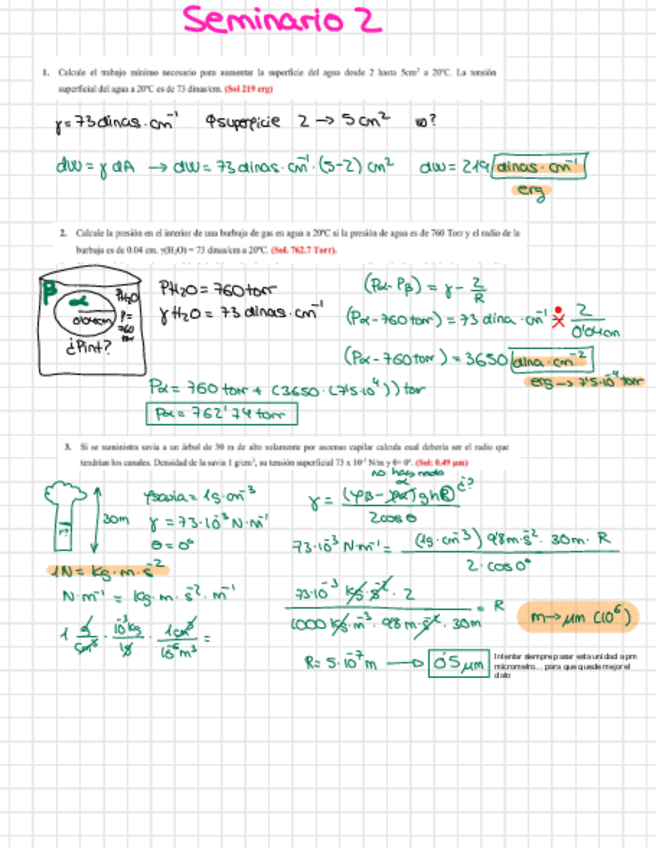 Seminario 2
1. Calcule el trabajo mínimo necesario para aumentar la superficie del agua desde 2 hasta 5cm² a 20°C. La tensión
superficial del agua a 20°C es de 73 dinas/cm. (Sol 219 erg)
γ = 73 dinas·cm⁻¹ φsuperficie 2 → 5 cm² w?
dW = γ dA → dW = 73 dinas·cm⁻¹·(5-2) cm² dW = 219 dinas·cm⁻¹
erg
2. Calcule la presión en el interior de una burbuja de gas en agua a 20°C si la presión de agua es de 760 Torr y el radio de la
burbuja es de 0.04 cm. γ(H₂O) = 73 dinas/cm a 20°C. (Sol. 762.7 Torr).
β α
PH₂O
P=
760
torr
0'04cm
¿Pint?
PH₂O = 760 torr
γH₂O = 73 dinas·cm⁻¹
(Pα - Pβ) = γ - 2/R
(Pα - 760 torr) = 73 dina·cm⁻¹ × 2/0'04cm
(Pα - 760 torr) = 3650 dina·cm⁻²
erg → 7'5·10⁻⁴ torr
Pα = 760 torr + (3650·(7'5·10⁻⁴)) torr
Pα = 762'74 torr
3. Si se suministra savia a un árbol de 30 m de alto solamente por ascenso capilar calcula cual debería ser el radio que
tendrían los canales. Densidad de la savia 1 g/cm³, su tensión superficial 73 x 10⁻³ N/m y θ= 0°. (Sol: 0.49 µm)
30m
r?
ρsavia = 1g·cm⁻³
γ = 73·10⁻³ N·m⁻¹
θ = 0°
no hay nada
γ = (ρβ - ρα) g h R ¿? / 2cosθ
73·10⁻³ N·m⁻¹ = (1g·cm⁻³) 9'8m·s⁻². 30m · R / 2·cos0°
1N = kg·m·s⁻²
N·m⁻¹ = kg·m·s⁻²·m⁻¹
1 g/cm³ · 10⁻³kg/1g · 1cm³/10⁻⁶m³ =
73·10⁻³ kg·s⁻²·2 / 1000 kg·m⁻³·9'8 m·s⁻²·30m = R
m → µm (10⁶)
R = 5·10⁻⁷ m → 0'5 µm
Intentar siempre pasar esta unidad a pm
micrometro... para que quede mejor el
dato